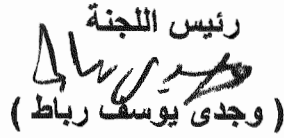 رئيس اللجنة
( وجدى يوسف رباط )